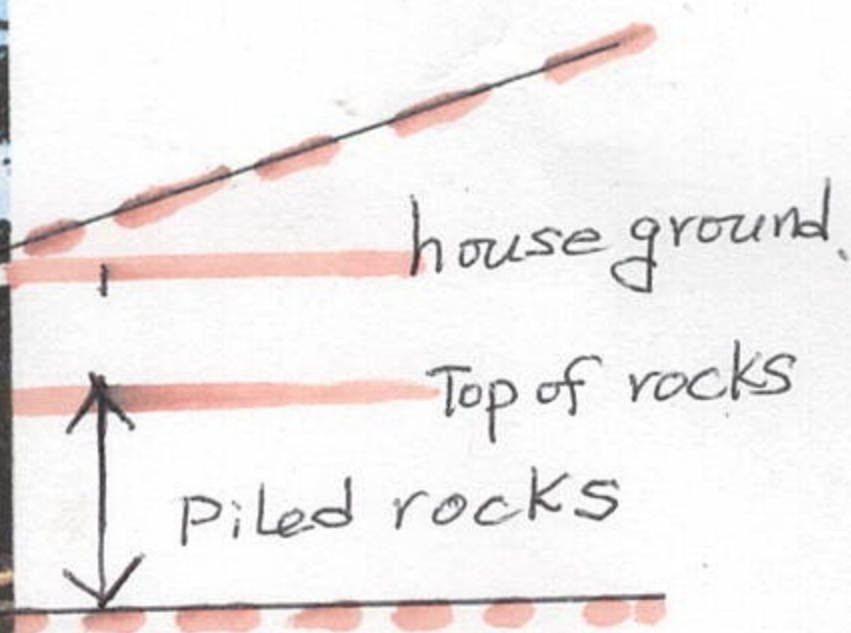 house ground.
Top of rocks
Piled rocks